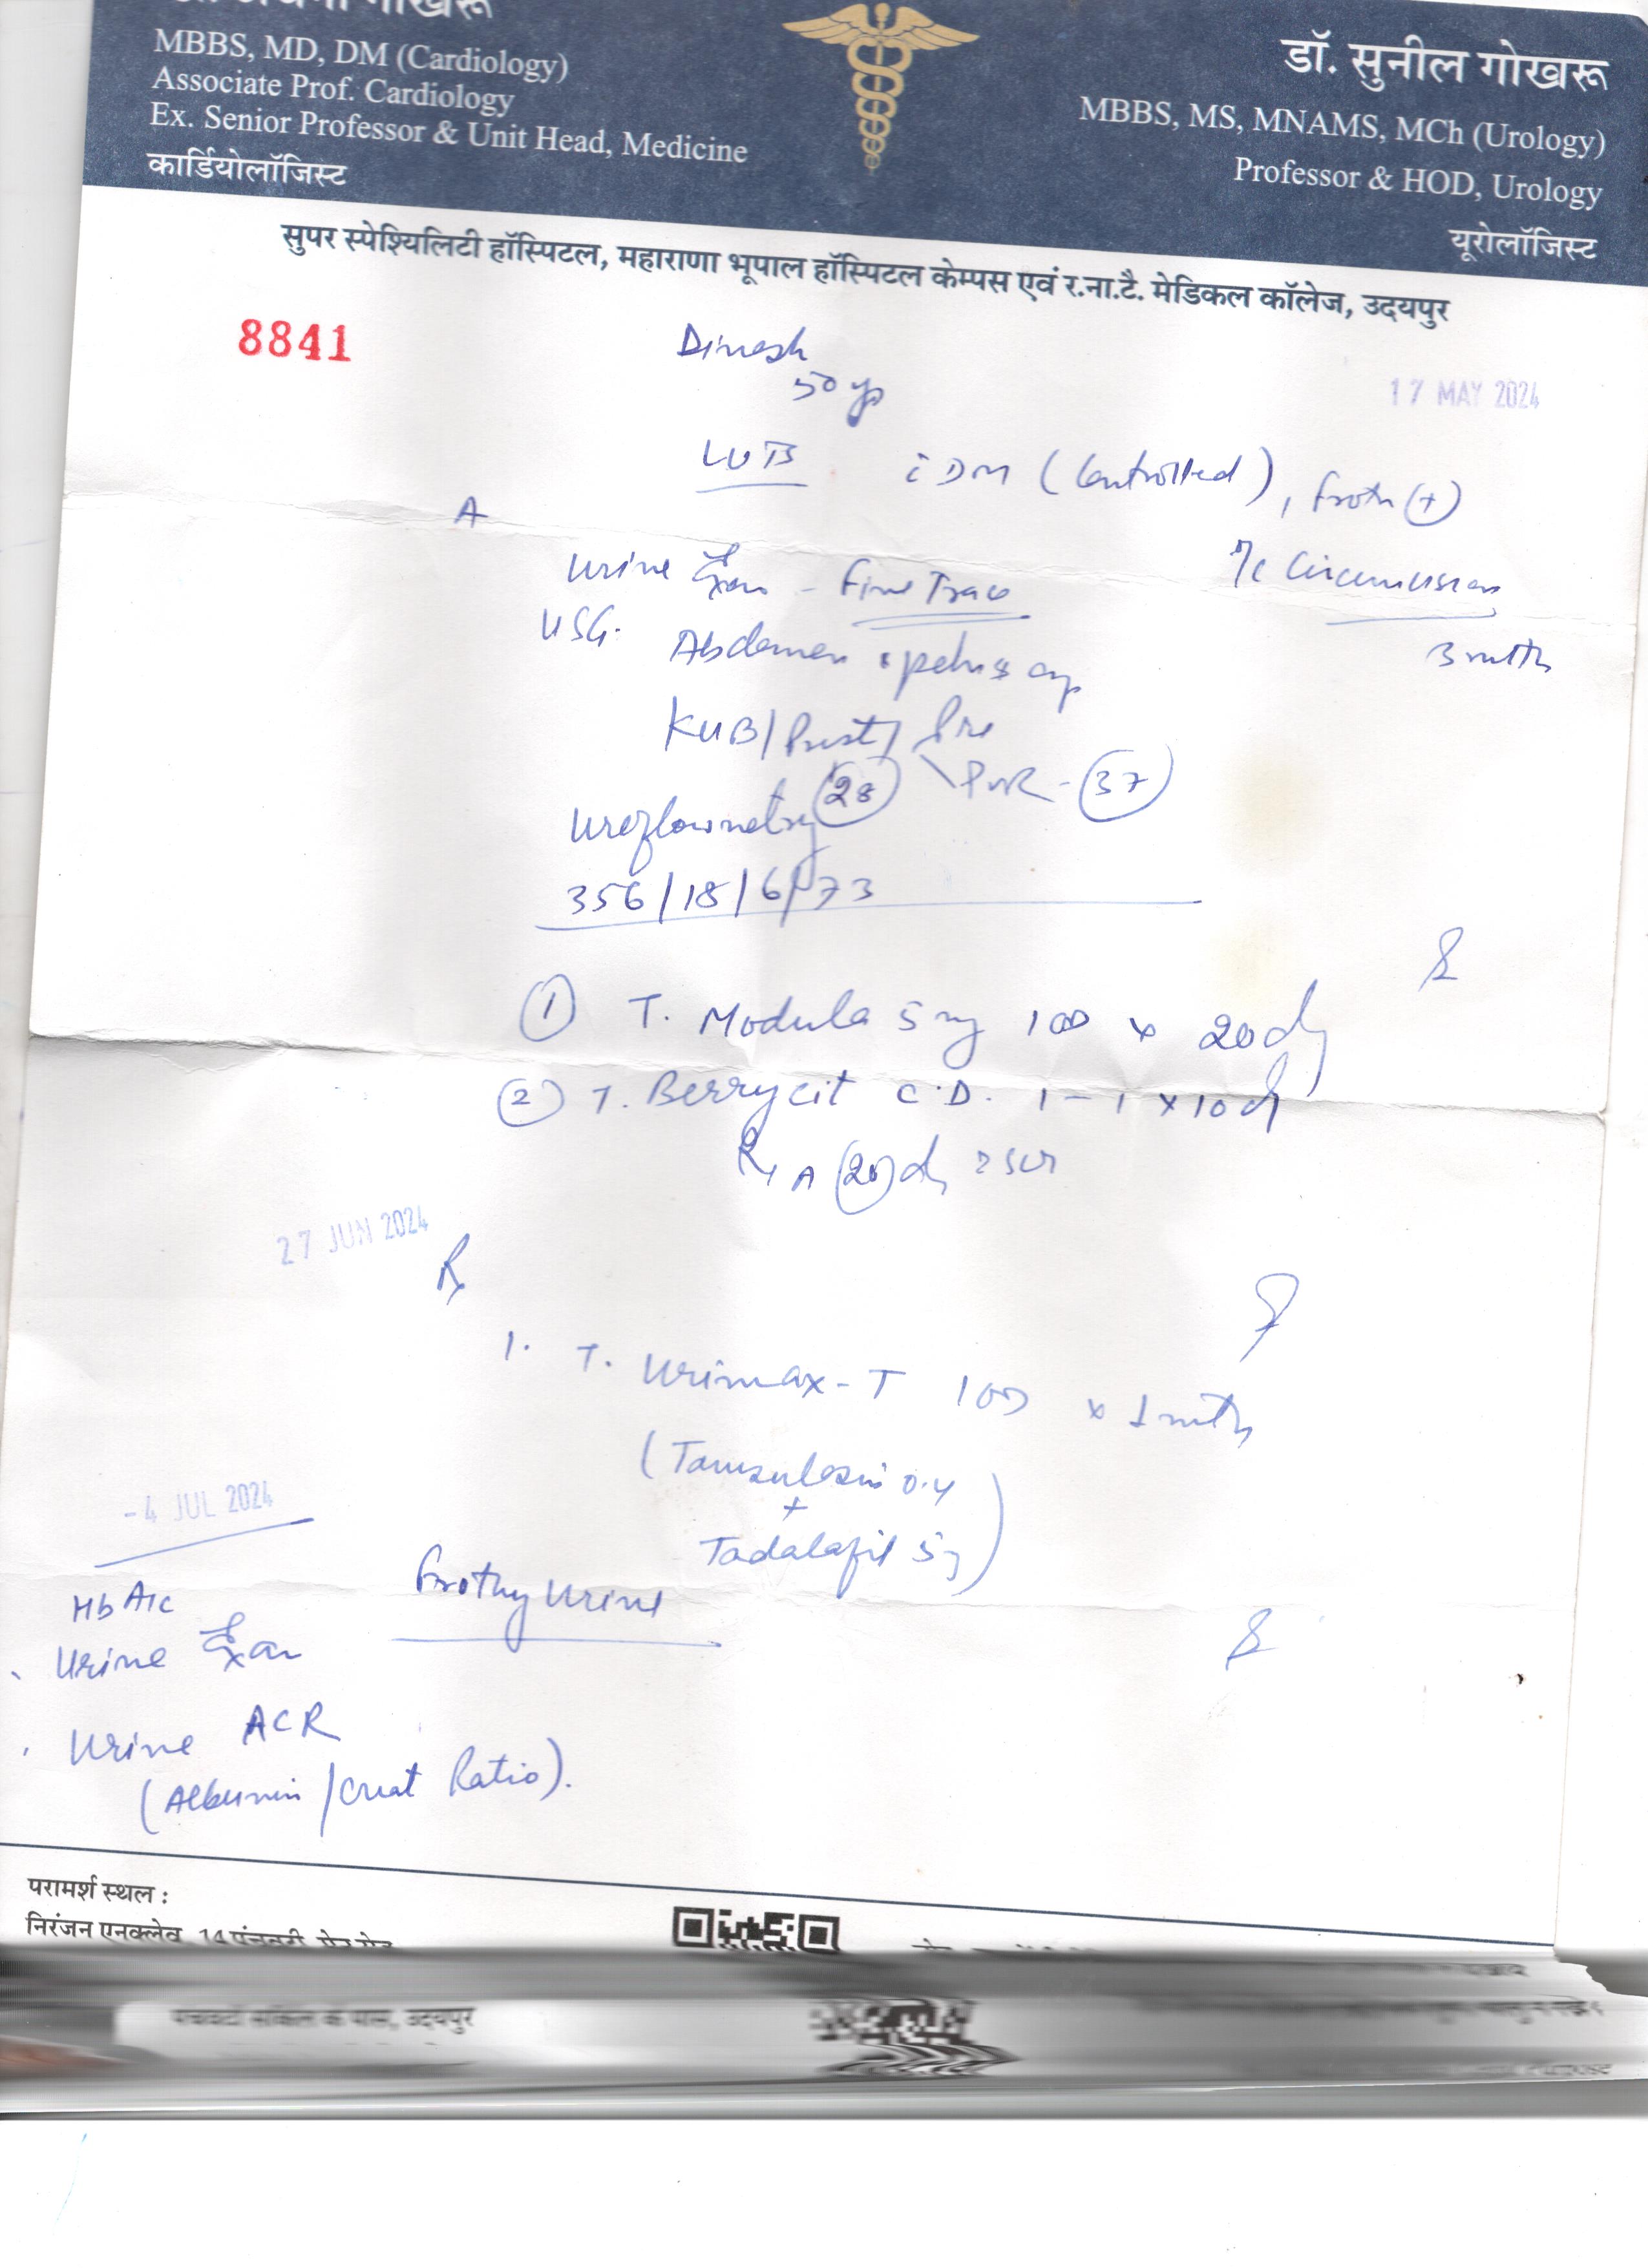 MBBS, MD, DM (Cardiology)
Associate Prof. Cardiology
Ex. Senior Professor & Unit Head, Medicine
कार्डियोलॉजिस्ट
डॉ. सुनील गोखरू
MBBS, MS, MNAMS, MCh (Urology)
Professor & HOD, Urology
यूरोलॉजिस्ट
सुपर स्पेश्यिलिटी हॉस्पिटल, महाराणा भूपाल हॉस्पिटल केम्पस एवं र.ना.टै. मेडिकल कॉलेज, उदयपुर
8841
Dinesh
50 yr
17 MAY 2024
LUTS c DM (Controlled), Froth (+)
A
Urine Exam - Fine Trace
Circumcision
3 mth
USG. Abdomen & pelvis
KUB/Prost/ Pre
28 PVR - 37
Uroflowmetry
356/18/6/73
1 T. Modula 5 mg 1 OD x 20 d
2 T. Berrycit C.D. 1-1 x 10 d
A 20 d
27 JUN 2024
Rx
1. T. Urimax-T 1 OD x 1 mth
(Tamsulosin 0.4
+
Tadalafil 5 mg)
- 4 JUL 2024
Frothy Urine
HbA1c
Urine Exam
Urine ACR
(Albumin/Creat Ratio).
परामर्श स्थल :
निरंजन एनक्लेव, 14 पंचवटी
उदयपुर